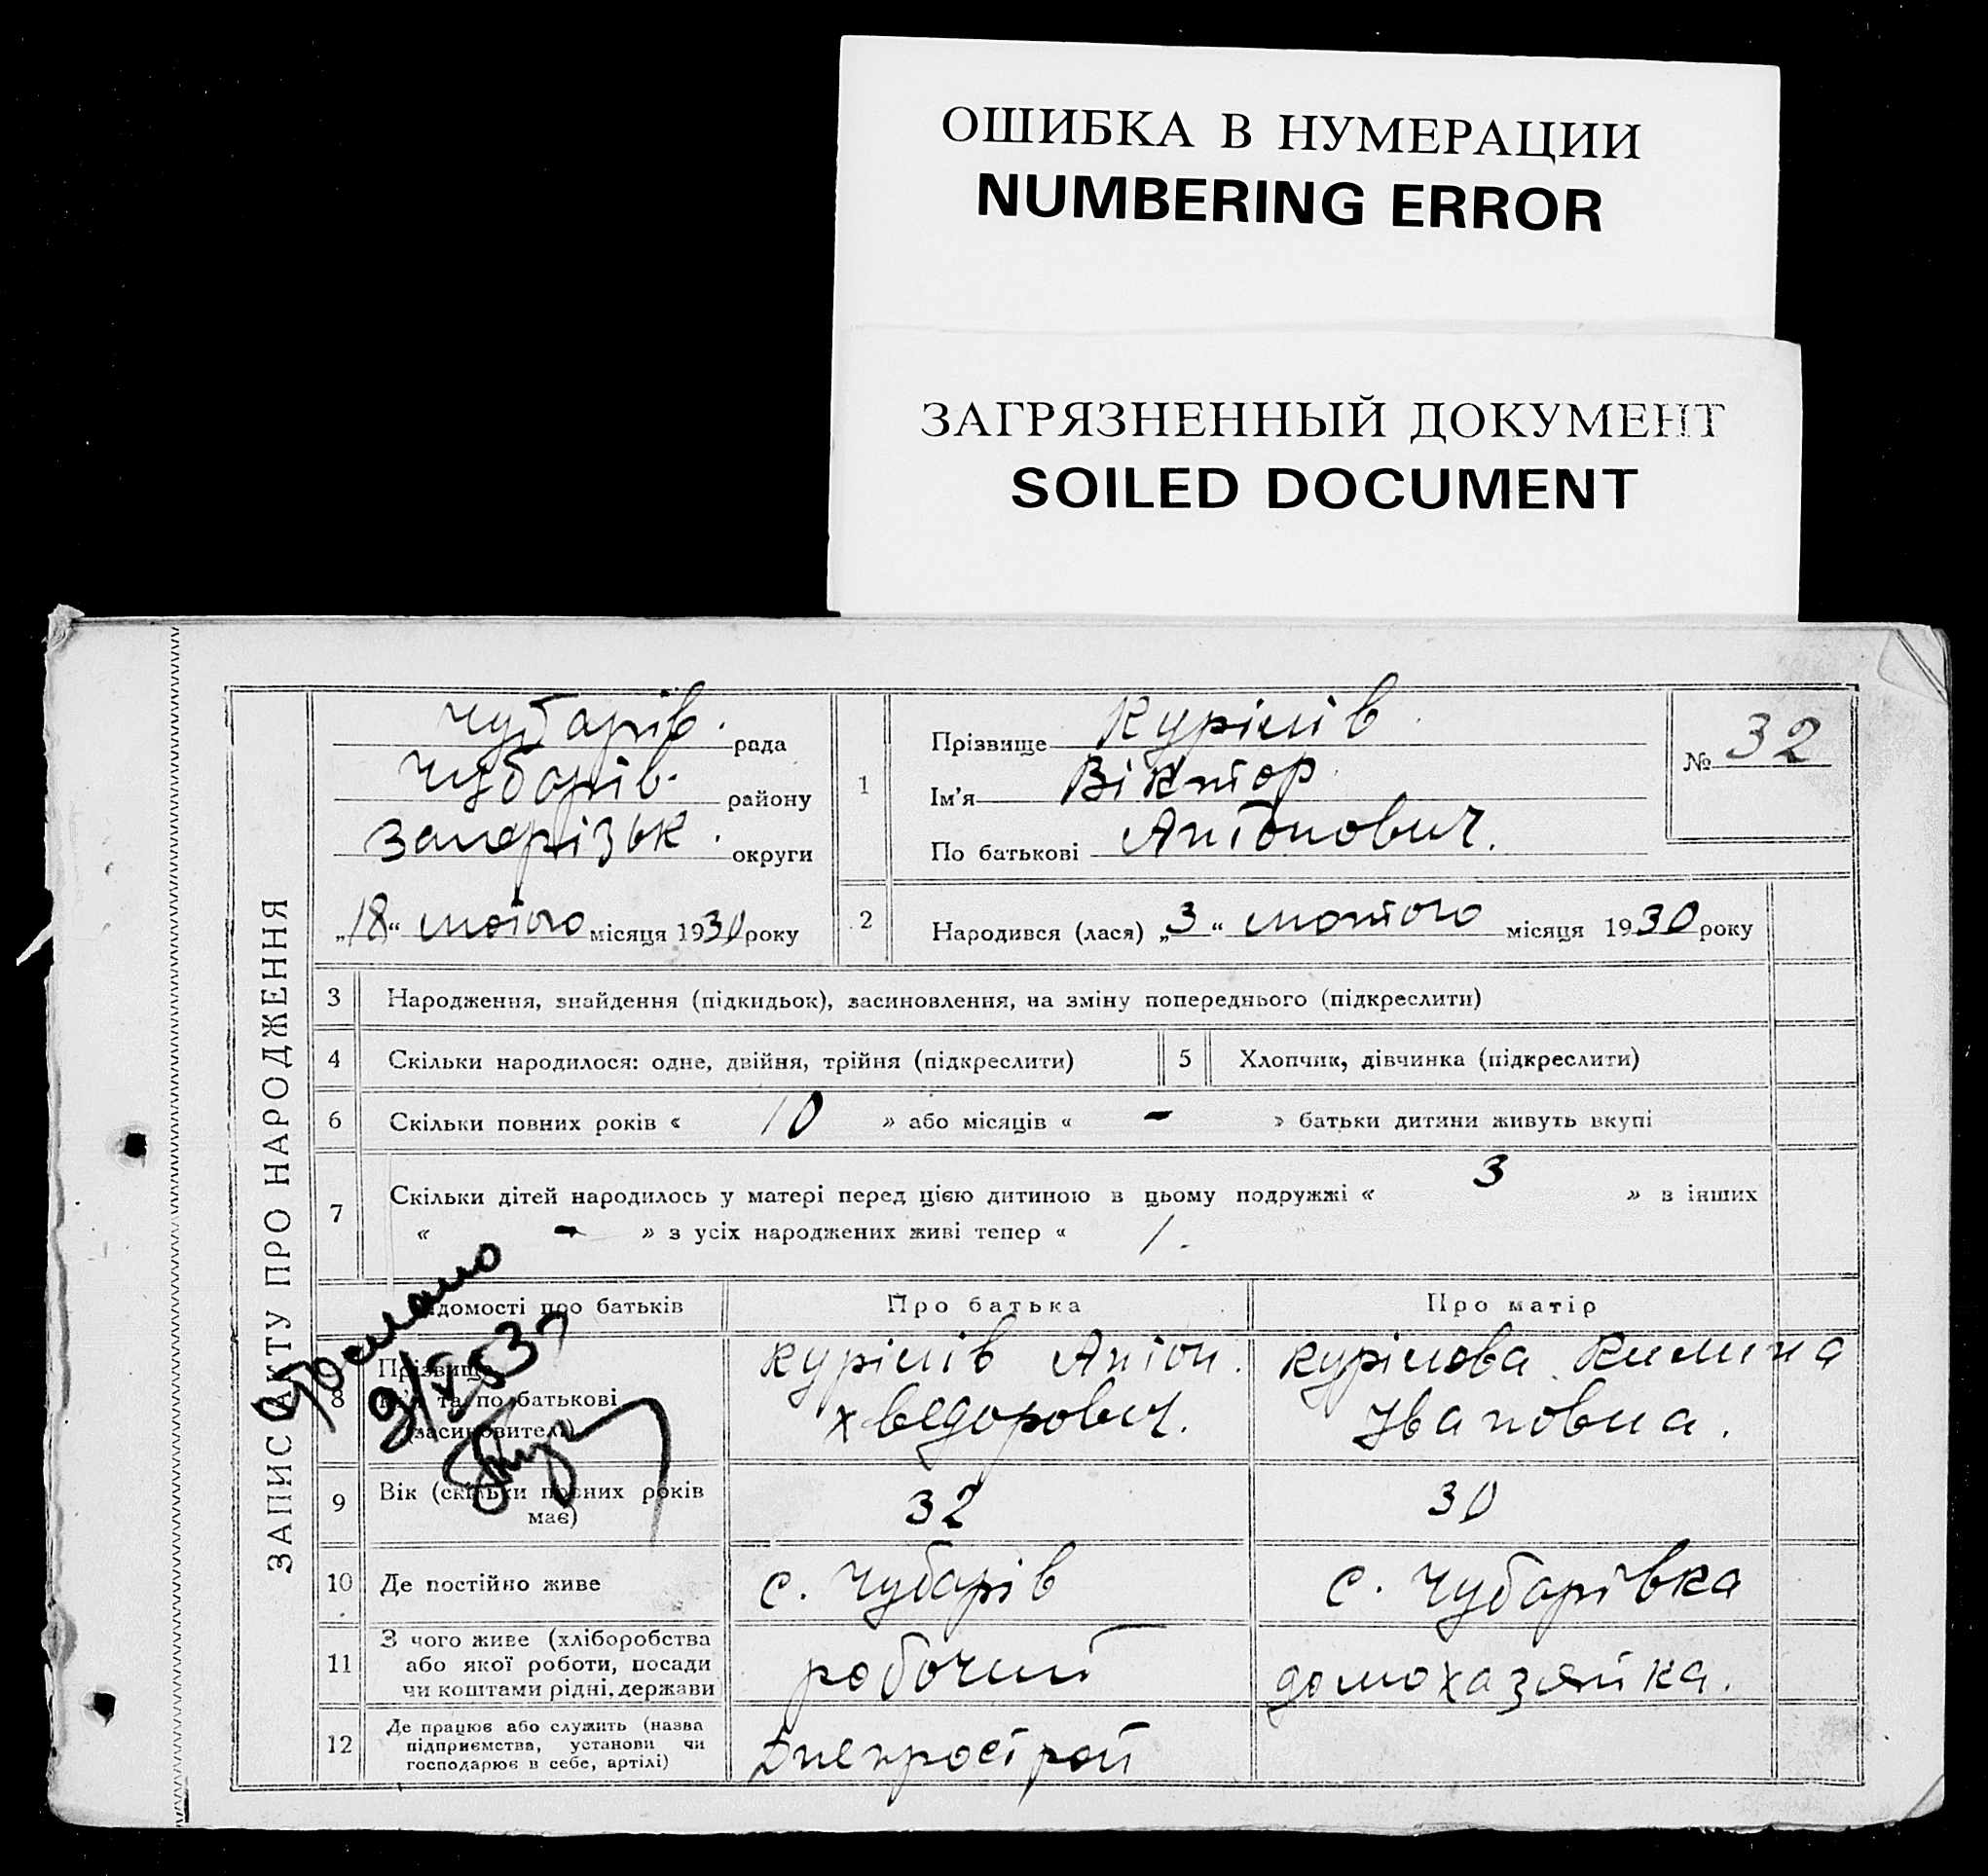 ОШИБКА В НУМЕРАЦИИ
NUMBERING ERROR
ЗАГРЯЗНЕННЫЙ ДОКУМЕНТ
SOILED DOCUMENT
ЗАПИС АКТУ ПРО НАРОДЖЕННЯ
Чубарів. рада
Чубарів. району
Запорізьк. округи
„18“ лютого місяця 1930 року
1
Прізвище Курілів
Ім’я Віктор
По батькові Антонович.
№ 32
2 Народився (лася) „3“ лютого місяця 1930 року
3 Народження, знайдення (підкидьок), засиновлення, на зміну попереднього (підкреслити)
4 Скільки народилося: одне, двійня, трійня (підкреслити)
5 Хлопчик, дівчинка (підкреслити)
6 Скільки повних років « 10 » або місяців « - » батьки дитини живуть вкупі
7 Скільки дітей народилось у матері перед цією дитиною в цьому подружжі « 3 » в інших
« - » з усіх народжених живі тепер « 1.
Відомості про батьків Про батька Про матір
8 Прізвище Курілів Антон. Курілова
Ім’я та по батькові Хведорович. Івановна.
(засиновителі)
9 Вік (скільки повних років 32 30
має)
10 Де постійно живе с. Чубарів с. Чубарівка
11 З чого живе (хліборобства
або якої роботи, посади робочий домохазяйка.
чи коштами рідні, держави
12 Де працює або служить (назва
підприємства, установи чи Днепрострой
господарює в себе, артілі)